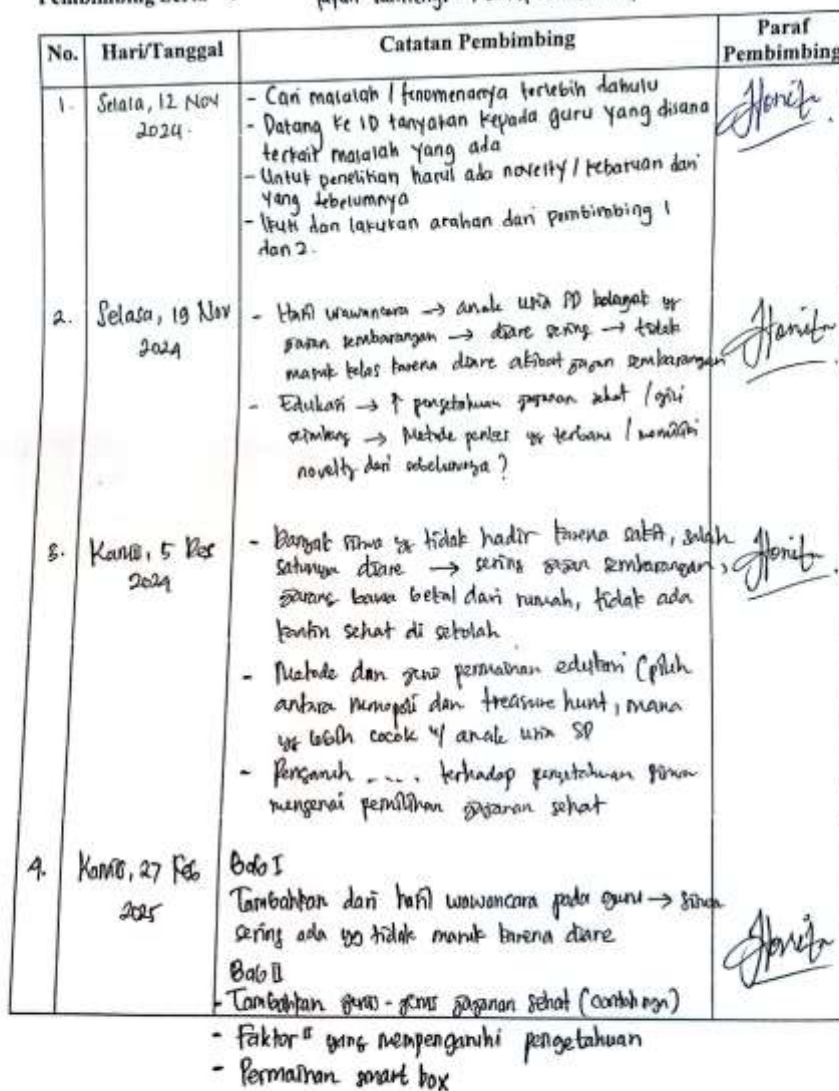 No. Hari/Tanggal Catatan Pembimbing Paraf Pembimbing
1. Selasa, 12 Nov 2024.
- Cari masalah / fenomenanya terlebih dahulu
- Datang ke SD tanyakan kepada guru yang disana
terkait masalah yang ada
- Untuk penelitian harus ada novelty / kebaruan dari
yang sebelumnya
- Ikuti dan lakukan arahan dari pembimbing 1
dan 2.
2. Selasa, 19 Nov 2024
- Hasil wawancara → anak usia SD banyak yg
jajan sembarangan → diare sering → tidak
masuk kelas karena diare akibat jajan sembarangan
- Edukasi → ↑ pengetahuan jajanan sehat / gizi
seimbang → Metode penkes yg terbaru / memiliki
novelty dari sebelumnya ?
3. Kamis, 5 Des 2024
- Banyak siswa yg tidak hadir karena sakit, salah
satunya diare → sering jajan sembarangan,
jarang bawa bekal dari rumah, tidak ada
kantin sehat di sekolah
- Metode dan jenis permainan edukasi (pilih
antara monopoli dan treasure hunt, mana
yg lebih cocok u/ anak usia SD
- Pengaruh .... terhadap pengetahuan siswa
mengenai pemilihan jajanan sehat
4. Kamis, 27 Feb 2025
Bab I
Tambahkan dari hasil wawancara pada guru → siswa
sering ada yg tidak masuk karena diare
Bab II
- Tambahkan jenis - jenis jajanan sehat (contohnya)
- Faktor" yang mempengaruhi pengetahuan
- Permainan smart box